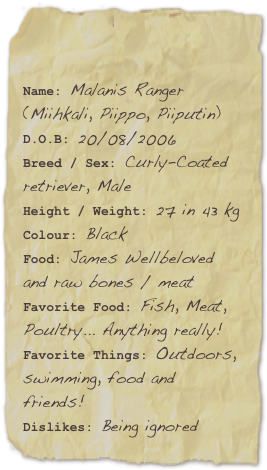 Name: Malanis Ranger
(Miihkali, Piippo, Piiputin)
D.O.B: 20/08/2006
Breed / Sex: Curly-Coated
retriever, Male
Height / Weight: 27 in 43 kg
Colour: Black
Food: James Wellbeloved
and raw bones / meat
Favorite Food: Fish, Meat,
Poultry... Anything really!
Favorite Things: Outdoors,
swimming, food and
friends!
Dislikes: Being ignored